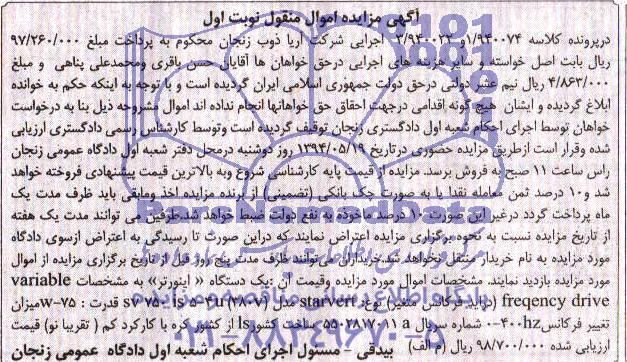 آگهی مزایده اموال منقول نوبت اول
درپرونده کلاسه ۱/۹۴۰۰۷۴و ۳/۹۴۰۰۲۳ اجرایی شرکت آریا ذوب زنجان محکوم به پرداخت مبلغ ۹۷/۲۶۰/۰۰۰
ریال بابت اصل خواسته و سایر هزینه های اجرایی درحق خواهان ها آقایان حسن باقری ومحمدعلی پناهی و مبلغ
۴/۸۶۳/۰۰۰ ریال نیم عشر دولتی درحق دولت جمهوری اسلامی ایران گردیده است و با توجه به اینکه حکم به خوانده
ابلاغ گردیده و ایشان هیچ گونه اقدامی درجهت احقاق حق خواهانها انجام نداده اند اموال مشروحه ذیل بنا به درخواست
خواهان توسط اجرای احکام شعبه اول دادگستری زنجان توقیف گردیده است وتوسط کارشناس رسمی دادگستری ارزیابی
شده وقرار است ازطریق مزایده حضوری درتاریخ ۱۳۹۴/۰۵/۱۹ روز دوشنبه درمحل دفتر شعبه اول دادگاه عمومی زنجان
راس ساعت ۱۱ صبح به فروش برسد. مزایده از قیمت پایه کارشناسی شروع وبه بالاترین قیمت پیشنهادی فروخته خواهد
شد و۱۰ درصد ثمن معامله نقدا یا به صورت چک بانکی (تضمینی) از برنده مزایده اخذ ومابقی باید ظرف مدت یک
ماه پرداخت گردد درغیر این صورت ۱۰ درصد ماخوذه به نفع دولت ضبط خواهد شد.طرفین می توانند مدت یک هفته
از تاریخ مزایده نسبت به نحوه برگزاری مزایده اعتراض نمایند که دراین صورت تا رسیدگی به اعتراض ازسوی دادگاه
مورد مزایده به نام خریدار منتقل نخواهد شد.خریداران می توانند ظرف مدت پنج روز قبل از تاریخ برگزاری مزایده از اموال
مورد مزایده بازدید نمایند. مشخصات اموال مورد مزایده وقیمت آن :یک دستگاه « اینورتر» به مشخصات variable
freqency drive (درایو فرکانس متغیر) نوع starvert مدل sv ۷۵۰ is ۵-۴u (۳۸۰۷) قدرت : w-۷۵میزان
تغییر فرکانس ۰-۴۰۰hz شماره سریال ۵۵۰۲۸۱۷۰۱۱a ساخت کشور ls از کشور کره با کارکرد کم ( تقریبا نو) قیمت
ارزیابی شده ۹۸/۷۰۰/۰۰۰ ریال (م الف) بیدقی - مسئول اجرای احکام شعبه اول دادگاه عمومی زنجان
ParsNamadData
۰۲۱-۸۸۳۴۹۶۷۰